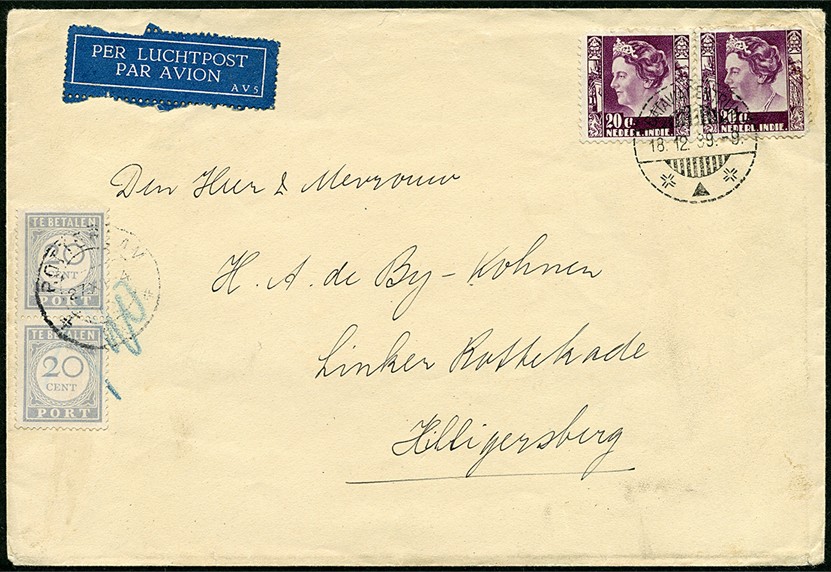 PER LUCHTPOST
PAR AVION
AV5
20 c.
NEDERL. INDIE.
20 c.
NEDERL. INDIE.
18.12.39.-9.
Den Heer & Mevrouw
H. A. de By-Kohnen
Linker Rottekade
Hilligersberg
TE BETALEN
20
CENT
PORT
TE BETALEN
20
CENT
PORT